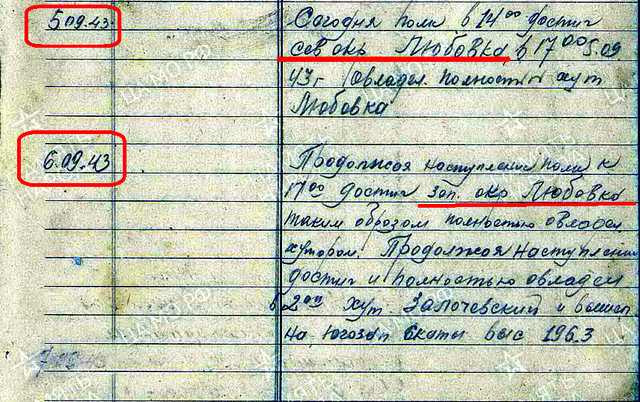 5.09.43. Сегодня полк в 14⁰⁰ достиг
сев окр Любовка, в 17⁰⁰ 5.09
43г. овладел полностью хут
Любовка
6.09.43 Продолжая наступление полк к
17⁰⁰ достиг зап. окр Любовка
таким образом полностью овладел
хутором. Продолжая наступление
достиг и полностью овладел
в 2⁰⁰ хут. Залочевский и вышел
на югозап скаты выс 196.3
7.09.43